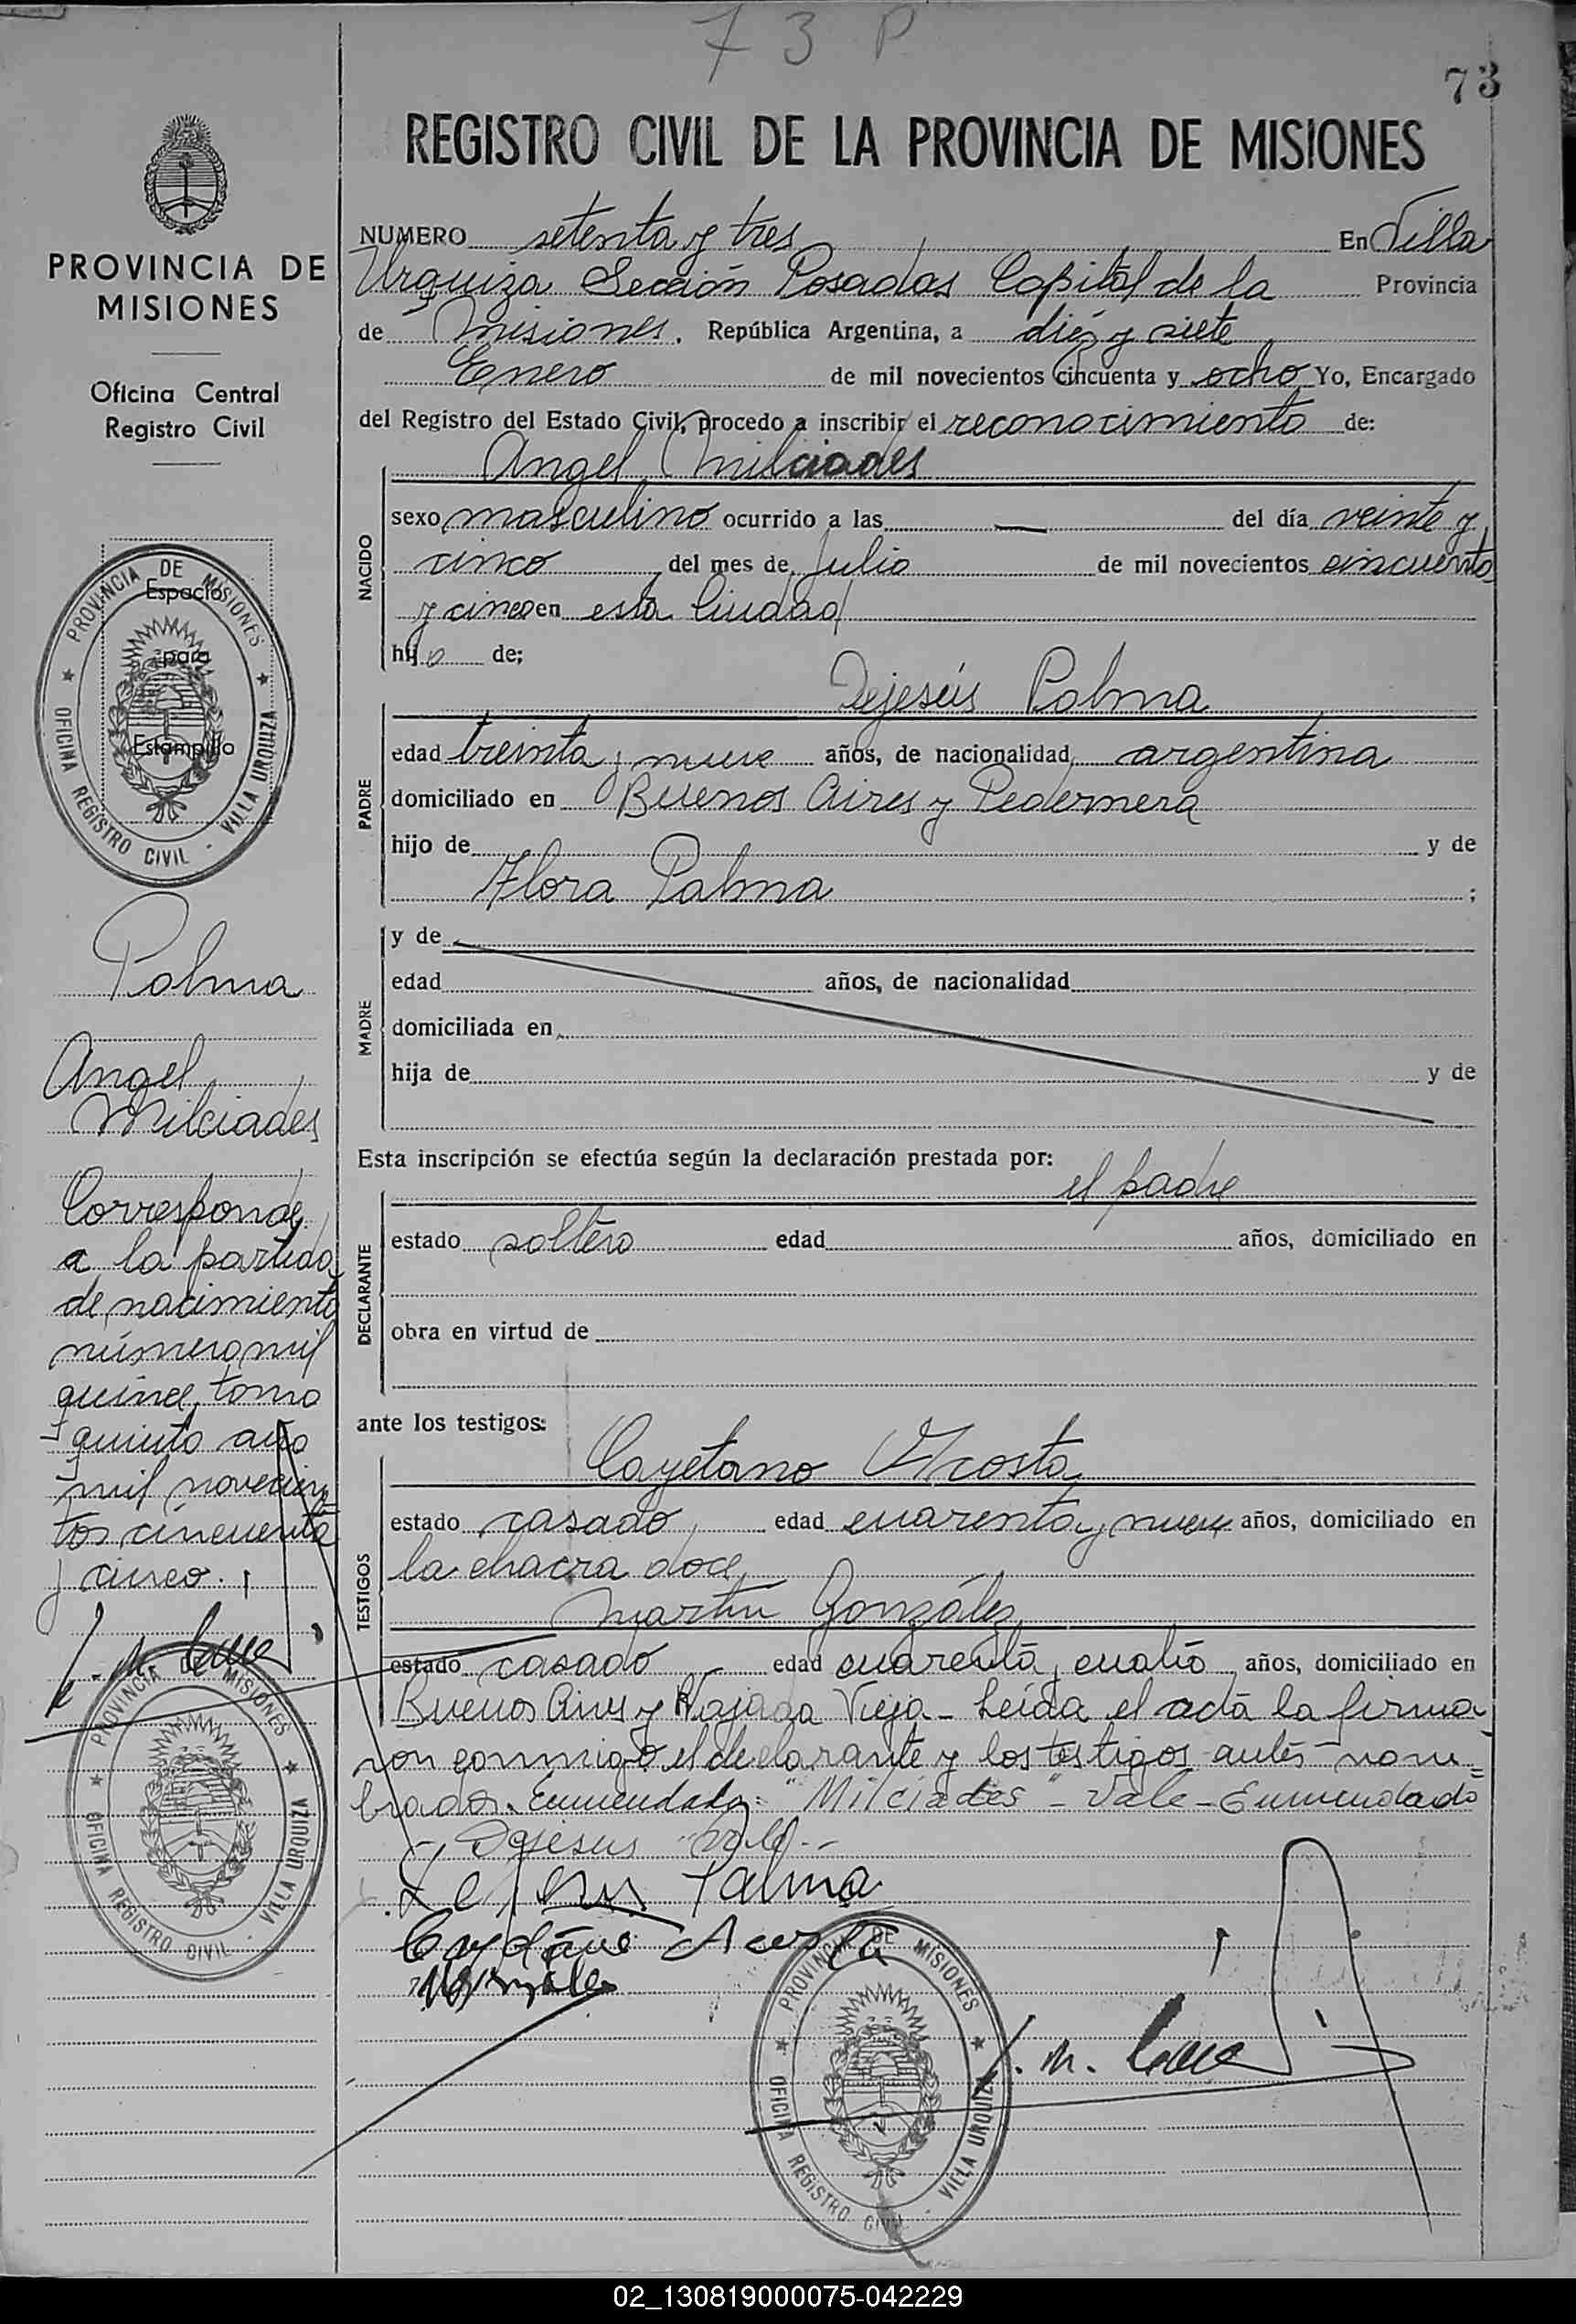 73 P
73
REGISTRO CIVIL DE LA PROVINCIA DE MISIONES
PROVINCIA DE
MISIONES
Oficina Central
Registro Civil
NUMERO setenta y tres En Villa
Urquiza Sección Posadas Capital de la Provincia
de Misiones. República Argentina, a diéz y siete
Enero de mil novecientos cincuenta y ocho Yo, Encargado
del Registro del Estado Civil, procedo a inscribir el reconocimiento de:
Angel Milciades
NACIDO
sexo masculino ocurrido a las — del día veinte y
cinco del mes de Julio de mil novecientos cincuenta
y cinco en esta Ciudad
hijo de;
PROVINCIA DE MISIONES
OFICINA REGISTRO CIVIL - VILLA URQUIZA
Espacio
para
Estampilla
Dejesús Palma
PADRE
edad treinta y nueve años, de nacionalidad argentina
domiciliado en Buenos Aires y Pedernera
hijo de y de
Flora Palma ;
MADRE
y de
edad años, de nacionalidad
domiciliada en
hija de y de
Palma
Angel
Milciades
Corresponde
a la partida
de nacimiento
número mil
quince, tomo
quinto año
mil novecien=
tos cincuenta
y cinco.
PROVINCIA DE MISIONES
OFICINA REGISTRO CIVIL - VILLA URQUIZA
Esta inscripción se efectúa según la declaración prestada por:
el padre
DECLARANTE
estado soltero edad años, domiciliado en
obra en virtud de
ante los testigos:
Cayetano Acosta
TESTIGOS
estado casado edad cuarenta y nueve años, domiciliado en
la chacra doce
Martín González
estado casado edad cuarenta y cuatro años, domiciliado en
Buenos Aires y Bajada Vieja - Leída el acta la firma
ron conmigo el declarante y los testigos antes nom=
brados. Enmendado: "Milciades" - Vale - Enmendado
Dejesus Vale -
Dejesus Palma
Cayetano Acosta
PROVINCIA DE MISIONES
OFICINA REGISTRO CIVIL - VILLA URQUIZA
02_130819000075-042229